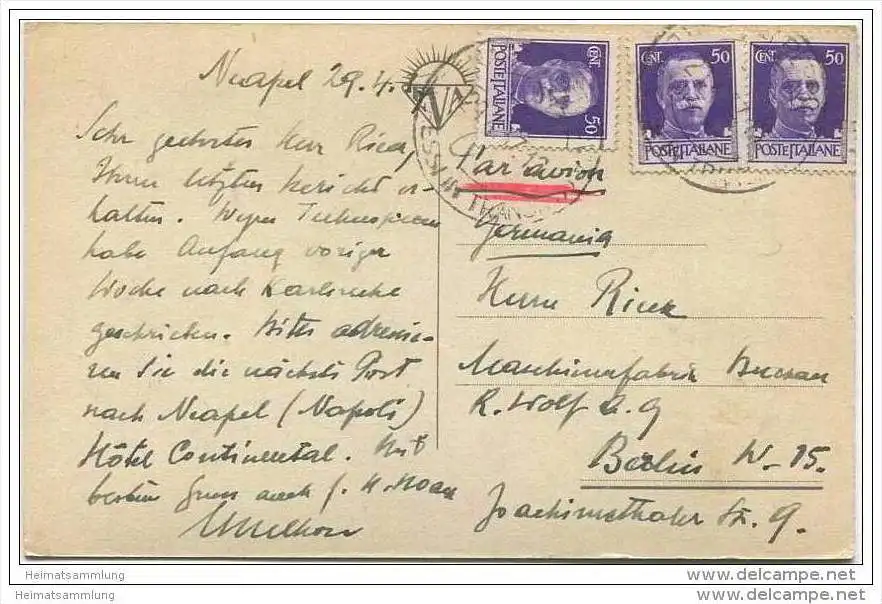 Neapel 29.4.
Sehr geehrter Herr Rieck,
Ihren letzten Bericht er-
halten. Wegen
habe Anfang voriger
Woche nach Karlsruhe
geschrieben. Bitte adressie-
ren Sie die nächste Post
nach Neapel (Napoli)
Hôtel Continental. Mit
bestem Gruss auch f. H.
CENT. 50
POSTE ITALIANE
CENT. 50
POSTE ITALIANE
CENT. 50
POSTE ITALIANE
NVA
Par avion
Germania
Herrn Rieck
Maschinenfabrik Buckau
R. Wolf A.G
Berlin W-15.
Joachimsthaler Str. 9.
Heimatsammlung
Heimatsammlung
www.delcampe.net
www.delcampe.net